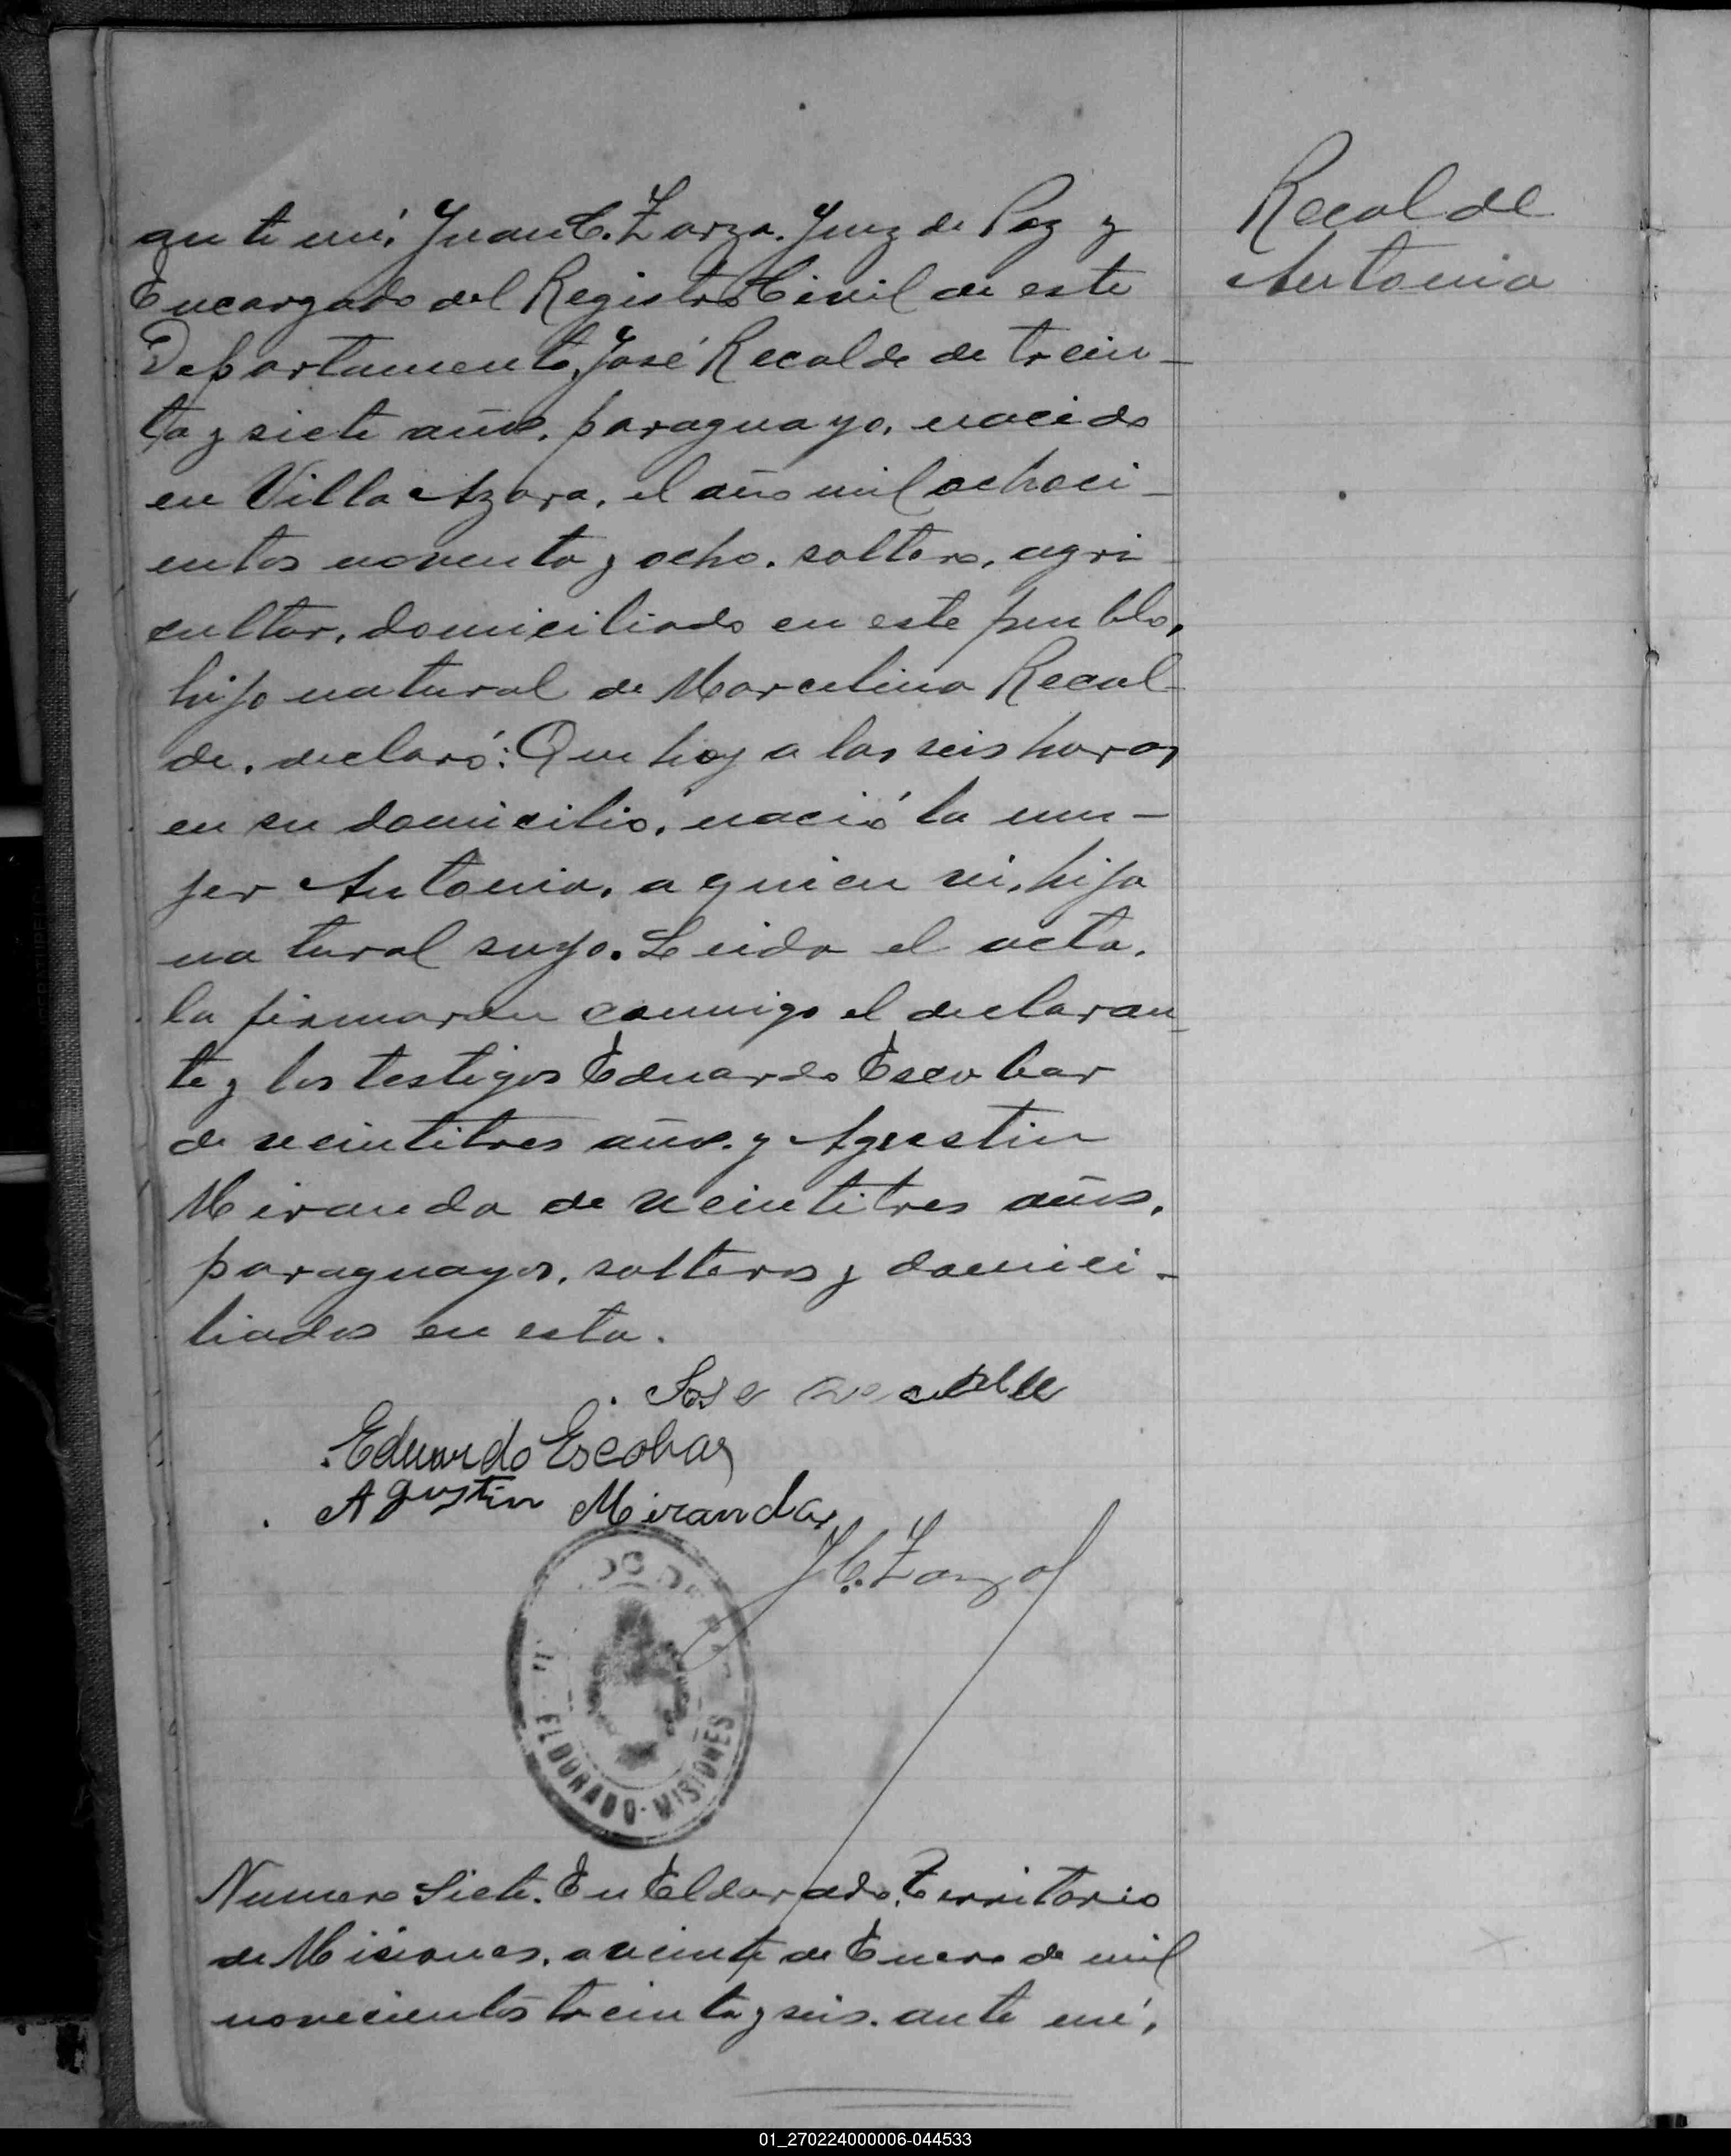 ante mí, Juan C. Zarza. Juez de Paz y
Encargado del Registro Civil de este
Departamento, José Recalde de trein-
ta y siete años, paraguayo, nacido
en Villa Azara, el año mil ochoci-
entos noventa y ocho, soltero, agri
cultor, domiciliado en este pueblo,
hijo natural de Marcelina Recal-
de, declaró: Que hoy a las seis horas
en su domicilio, nació la mu-
jer Antonia, a quien vi, hija
natural suya. Leida el acta,
la firmaron conmigo el declaran-
te y los testigos Eduardo Escobar
de veintitres años y Agustin
Miranda de veintitres años,
paraguayos, solteros y domici-
liados en esta.
Jose Recalde
Eduardo Escobar
Agustin Miranda
J. C. Zarza
DO DE PAZ
ELDORADO - MISIONES
Numero Siete. En Eldorado, Territorio
de Misiones, a veinte de Enero de mil
novecientos treinta y seis. ante mí,
Recalde
Antonia
01_270224000006-044533